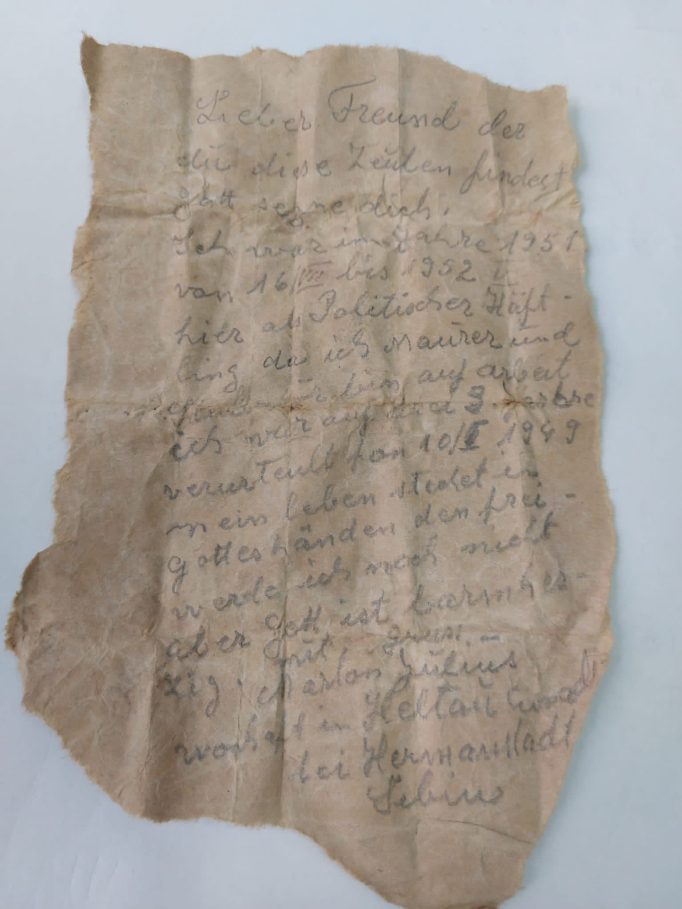 Lieber Freund der
du diese Zeulen findest
Gott segne dich.
Ich war im Jahre 1951
von 16/VII bis 1952 II
hier als Politischer Häft-
ling da ich Maurer und
bin auf arbeit
ich war auf 3 Jahre
verurteult von 10/I 1949
mein leben stehet in
gotteshänden den frei-
werde ich noch nicht
aber gott ist barmher-
zig. mit gruss. -
Marton Julius
wonhaft in Heltau
bei Hermanstadt
Sebiu